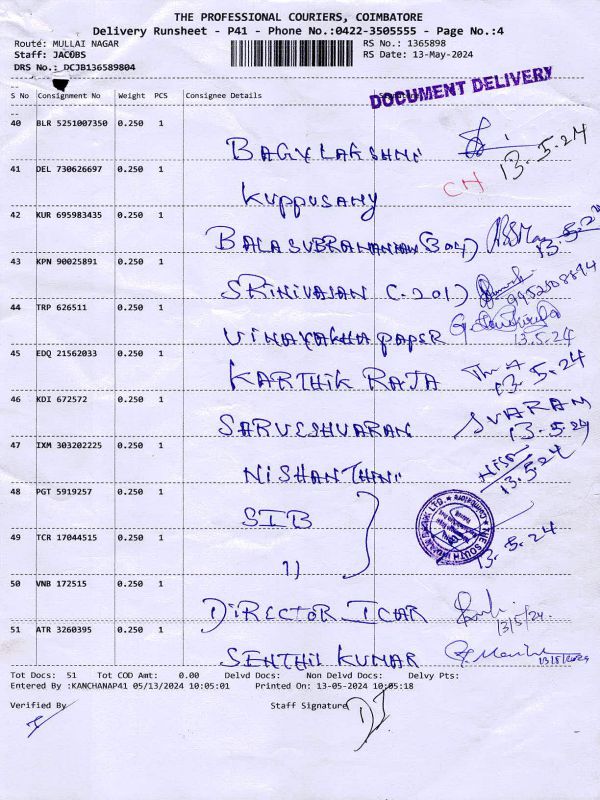 THE PROFESSIONAL COURIERS, COIMBATORE
Delivery Runsheet - P41 - Phone No.:0422-3505555 - Page No.:4
Route: MULLAI NAGAR RS No.: 1365898
Staff: JACOBS RS Date: 13-May-2024
DRS No.: DCJB136589804
DOCUMENT DELIVERY
S No Consignment No Weight PCS Consignee Details
40 BLR 5251007350 0.250 1
BAGYLAKSHMI 13.5.24
41 DEL 730626697 0.250 1
KUPPUSAMY CH
42 KUR 695983435 0.250 1
BALASUBRAMANIAN (304)
43 KPN 90025891 0.250 1
SRINIVASAN C-201) 9952508894
44 TRP 626511 0.250 1
VINAYAKHA PAPER 13.5.24
45 EDQ 21562033 0.250 1
KARTHIK RAJA 13.5.24
46 KDI 672572 0.250 1
SARVESHVARAN SVARAM
13.5.24
47 IXM 303202225 0.250 1
NISHANTHINI 13.5.24
48 PGT 5919257 0.250 1
SIB
THE SOUTH INDIAN BANK LTD.
49 TCR 17044515 0.250 1
11 13.5.24
50 VNB 172515 0.250 1
DIRECTOR ICAR 13/5/24
51 ATR 3260395 0.250 1
SENTHIL KUMAR 13/5/2024
Tot Docs: 51 Tot COD Amt: 0.00 Delvd Docs: Non Delvd Docs: Delvy Pts:
Entered By :KANCHANAP41 05/13/2024 10:05:01 Printed On: 13-05-2024 10:05:18
Verified By Staff Signature